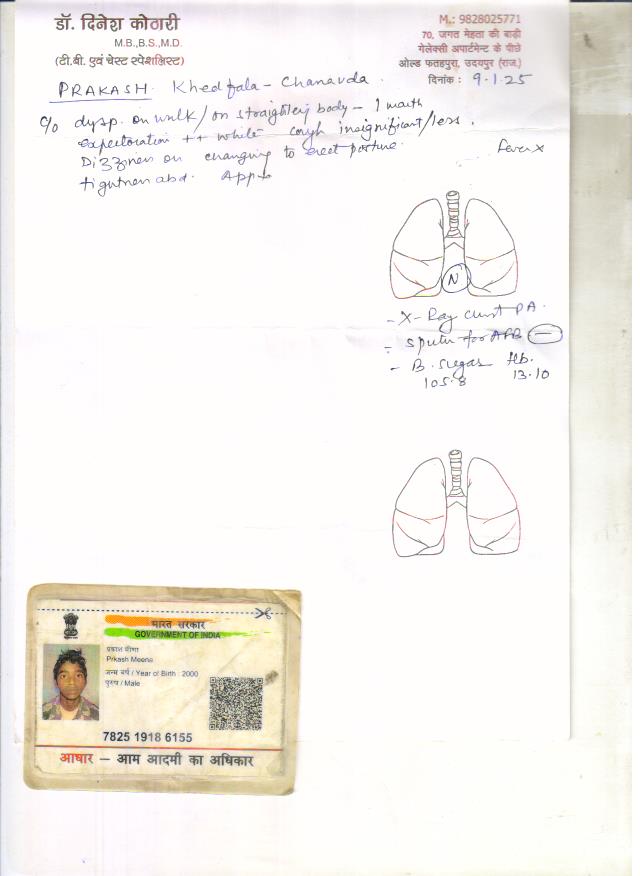 डॉ. दिनेश कोठारी
M.B.,B.S.,M.D.
(टी.बी. एवं चेस्ट स्पेशलिस्ट)
M.: 9828025771
70, जगत मेहता की बाड़ी
गेलेक्सी अपार्टमेन्ट के पीछे
ओल्ड फतहपुरा, उदयपुर (राज.)
दिनांक : 9.1.25
PRAKASH. Khedfala - Chanavda.
c/o dysp. on walk/on straightening body - 1 month
expectoration ++ while cough insignificant/less.
Dizziness on changing to erect posture.
Fever x
tightness abd. App
N
- X-Ray chest PA.
- Sputum for AFB -
- B. Sugar Hb.
105.8 13.10
भारत सरकार
GOVERNMENT OF INDIA
प्रकाश मीणा
Prkash Meena
जन्म वर्ष / Year of Birth : 2000
पुरुष / Male
7825 1918 6155
आधार – आम आदमी का अधिकार